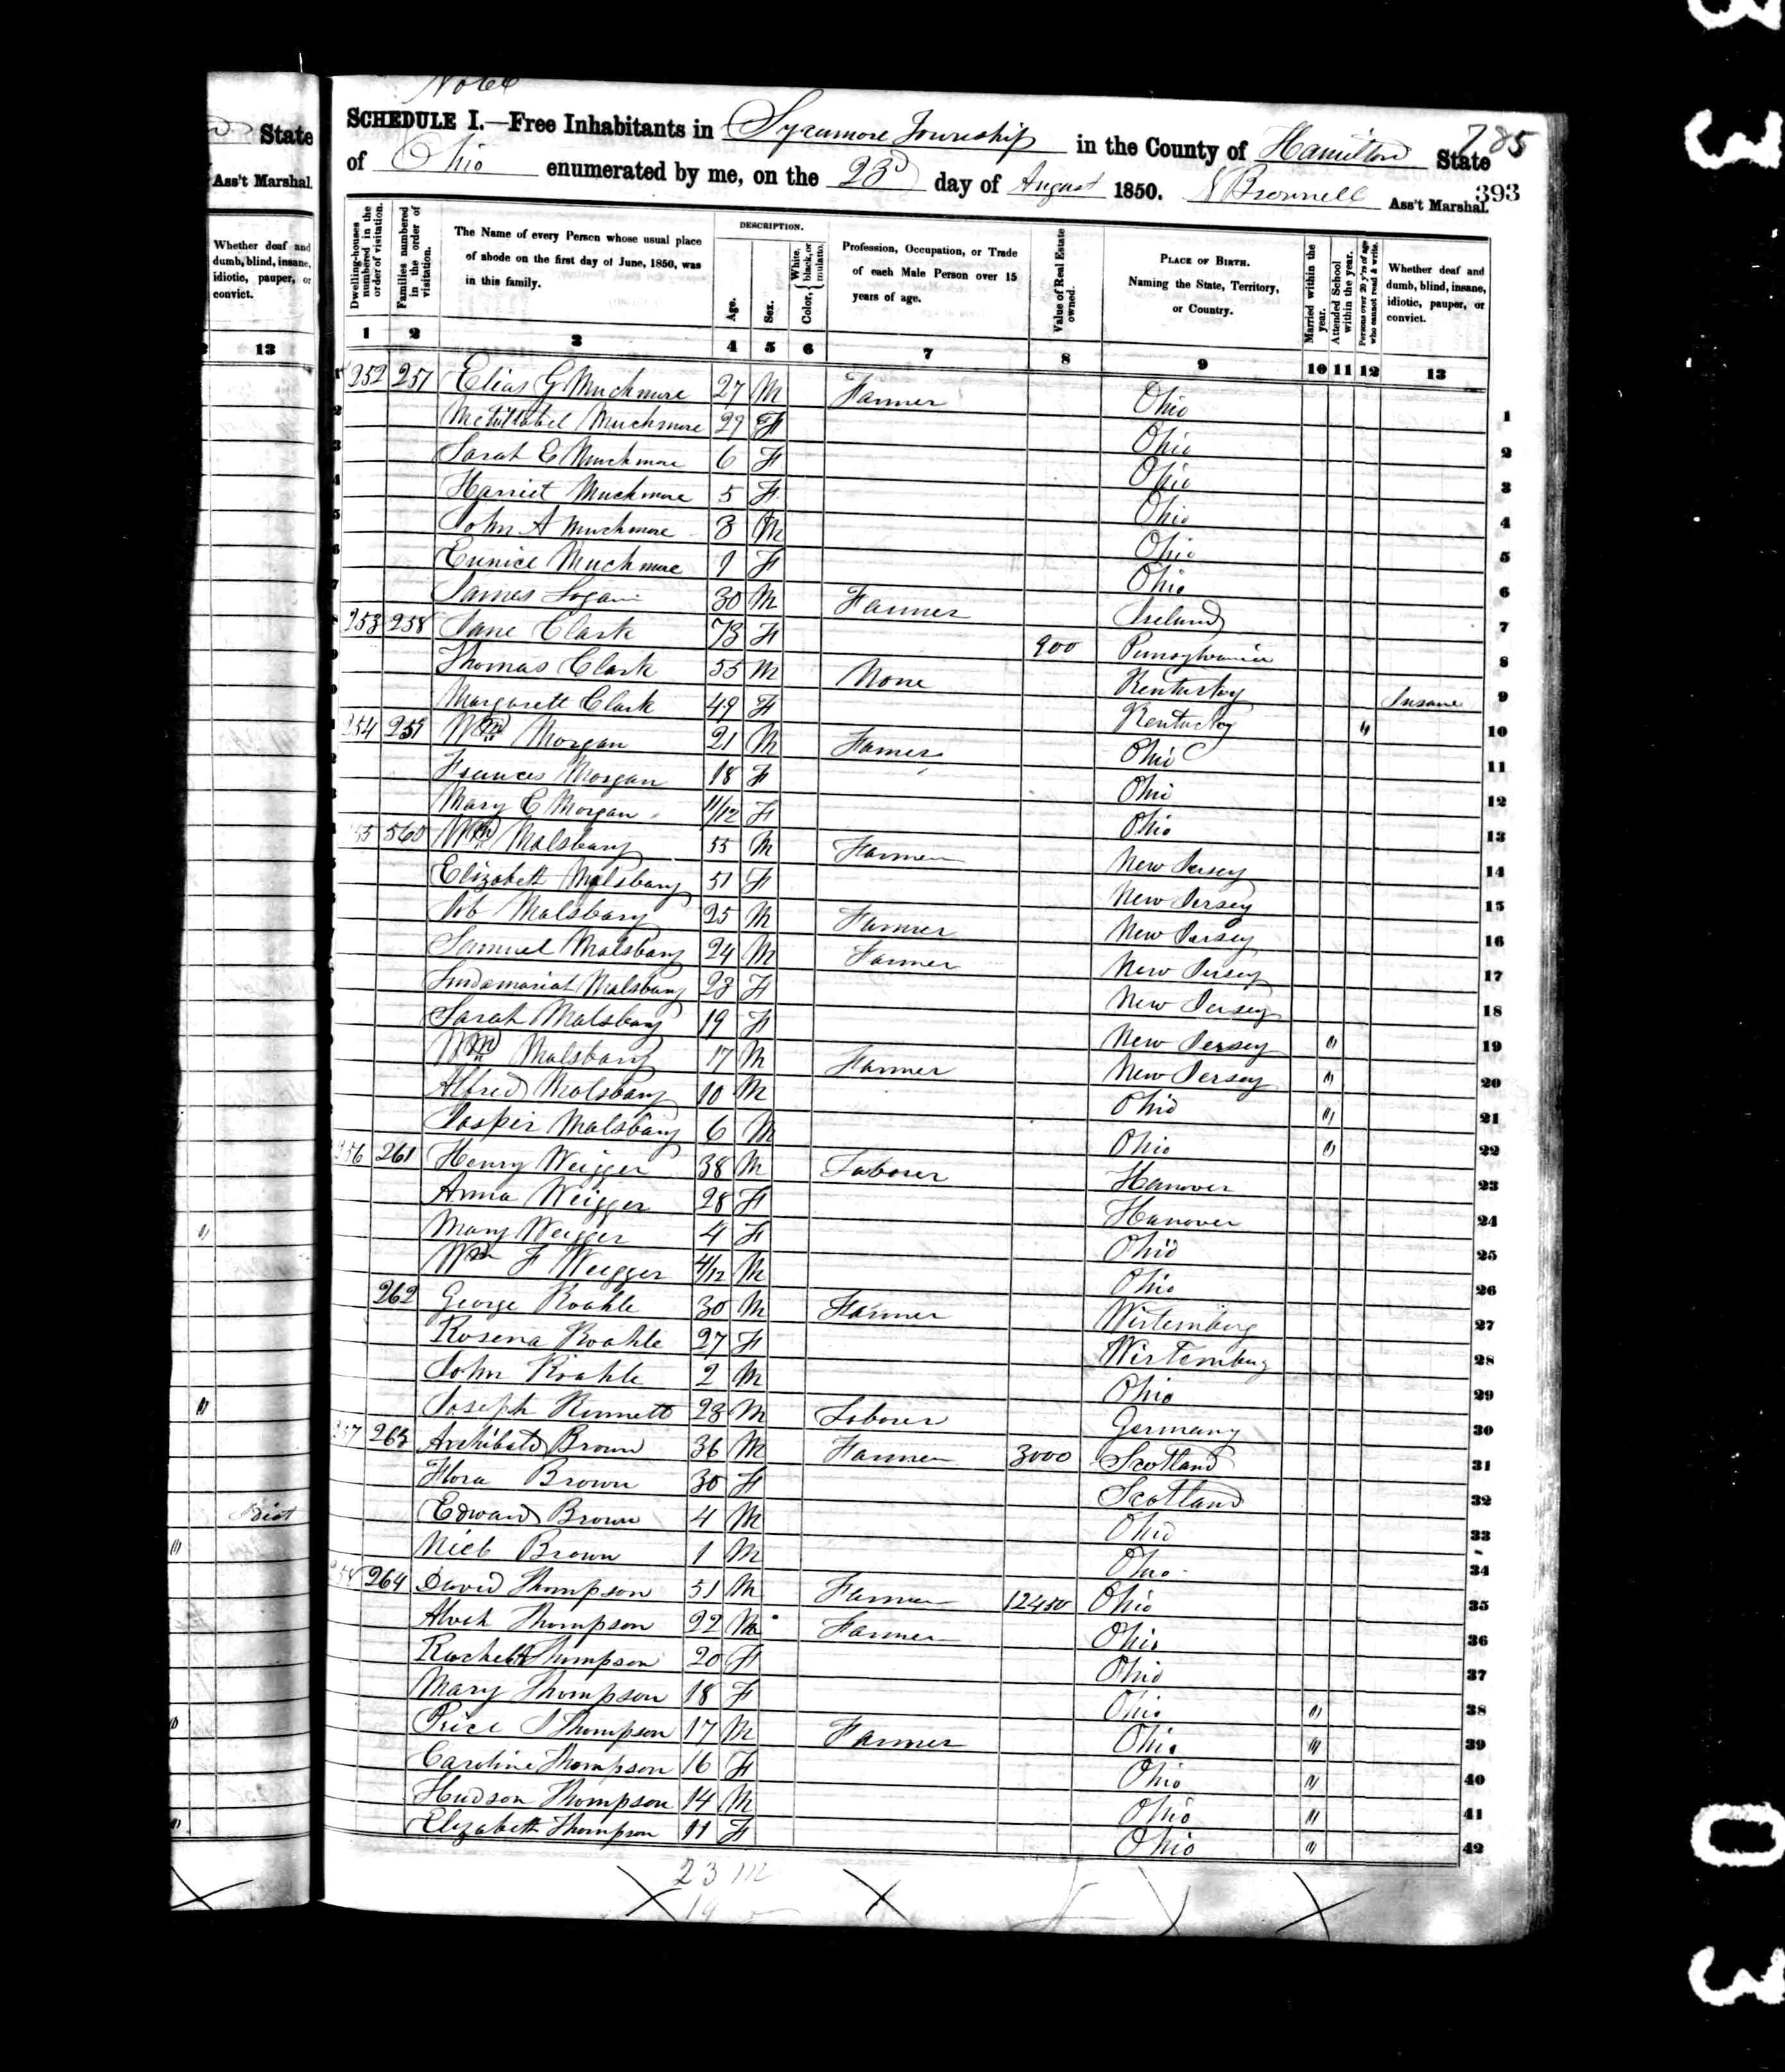 State
Ass't Marshal.
Whether deaf and
dumb, blind, insane,
idiotic, pauper, or
convict.
13
Idiot
785
SCHEDULE I.—Free Inhabitants in Sycamore Township in the County of Hamilton State
of Ohio enumerated by me, on the 23d day of August 1850. Brownell Ass't Marshal.
393
Dwelling-houses numbered in the order of visitation.
Families numbered in the order of visitation.
The Name of every Person whose usual place of abode on the first day of June, 1850, was in this family.
DESCRIPTION.
Age.
Sex.
Color, { White, black, or mulatto.
Profession, Occupation, or Trade of each Male Person over 15 years of age.
Value of Real Estate owned.
PLACE OF BIRTH. Naming the State, Territory, or Country.
Married within the year.
Attended School within the year.
Persons over 20 y'rs of age who cannot read & write.
Whether deaf and dumb, blind, insane, idiotic, pauper, or convict.
1 2 3 4 5 6 7 8 9 10 11 12 13
252 257 Elias G Muchmore 27 M Farmer Ohio 1
Mehittabel Muchmore 27 F Ohio 2
Sarah E Muchmore 6 F Ohio 3
Harriet Muchmore 5 F Ohio 4
John A Muchmore 3 M Ohio 5
Eunice Muchmore 1 F Ohio 6
James Logan 30 M Farmer Ireland 7
253 258 Jane Clark 73 F 900 Pennsylvania 8
Thomas Clark 55 M None Kentucky Insane 9
Margarett Clark 49 F Kentucky " 10
254 259 Wm Morgan 21 M Farmer Ohio 11
Frances Morgan 18 F Ohio 12
Mary C Morgan 11/12 F Ohio 13
55 560 Wm Malsbary 55 M Farmer New Jersey 14
Elizabeth Malsbary 51 F New Jersey 15
Job Malsbary 25 M Farmer New Jersey 16
Samuel Malsbary 24 M Farmer New Jersey 17
Malsbary 23 F New Jersey 18
Sarah Malsbary 19 F New Jersey " 19
Wm Malsbary 17 M Farmer New Jersey " 20
Alfred Malsbary 10 M Ohio " 21
Jasper Malsbary 6 M Ohio " 22
256 261 Henry Weigger 38 M Laborer Hanover 23
Anna Weigger 28 F Hanover 24
Mary Weigger 4 F Ohio 25
Wm F Weigger 4/12 M Ohio 26
262 George Roahle 30 M Farmer Wirtemburg 27
Rosena Roahle 27 F Wirtemburg 28
John Roahle 2 M Ohio 29
Joseph Rennett 23 M Laborer Germany 30
257 263 Archibald Brown 36 M Farmer 3000 Scotland 31
Flora Brown 30 F Scotland 32
Edward Brown 4 M Ohio 33
Brown 1 M Ohio 34
258 264 David Thompson 51 M Farmer 12450 Ohio 35
Thompson 22 M Farmer Ohio 36
Rachel Thompson 20 F Ohio 37
Mary Thompson 18 F Ohio " 38
Price J Thompson 17 M Farmer Ohio " 39
Caroline Thompson 16 F Ohio " 40
Hudson Thompson 14 M Ohio " 41
Elizabeth Thompson 11 F Ohio " 42
23 M